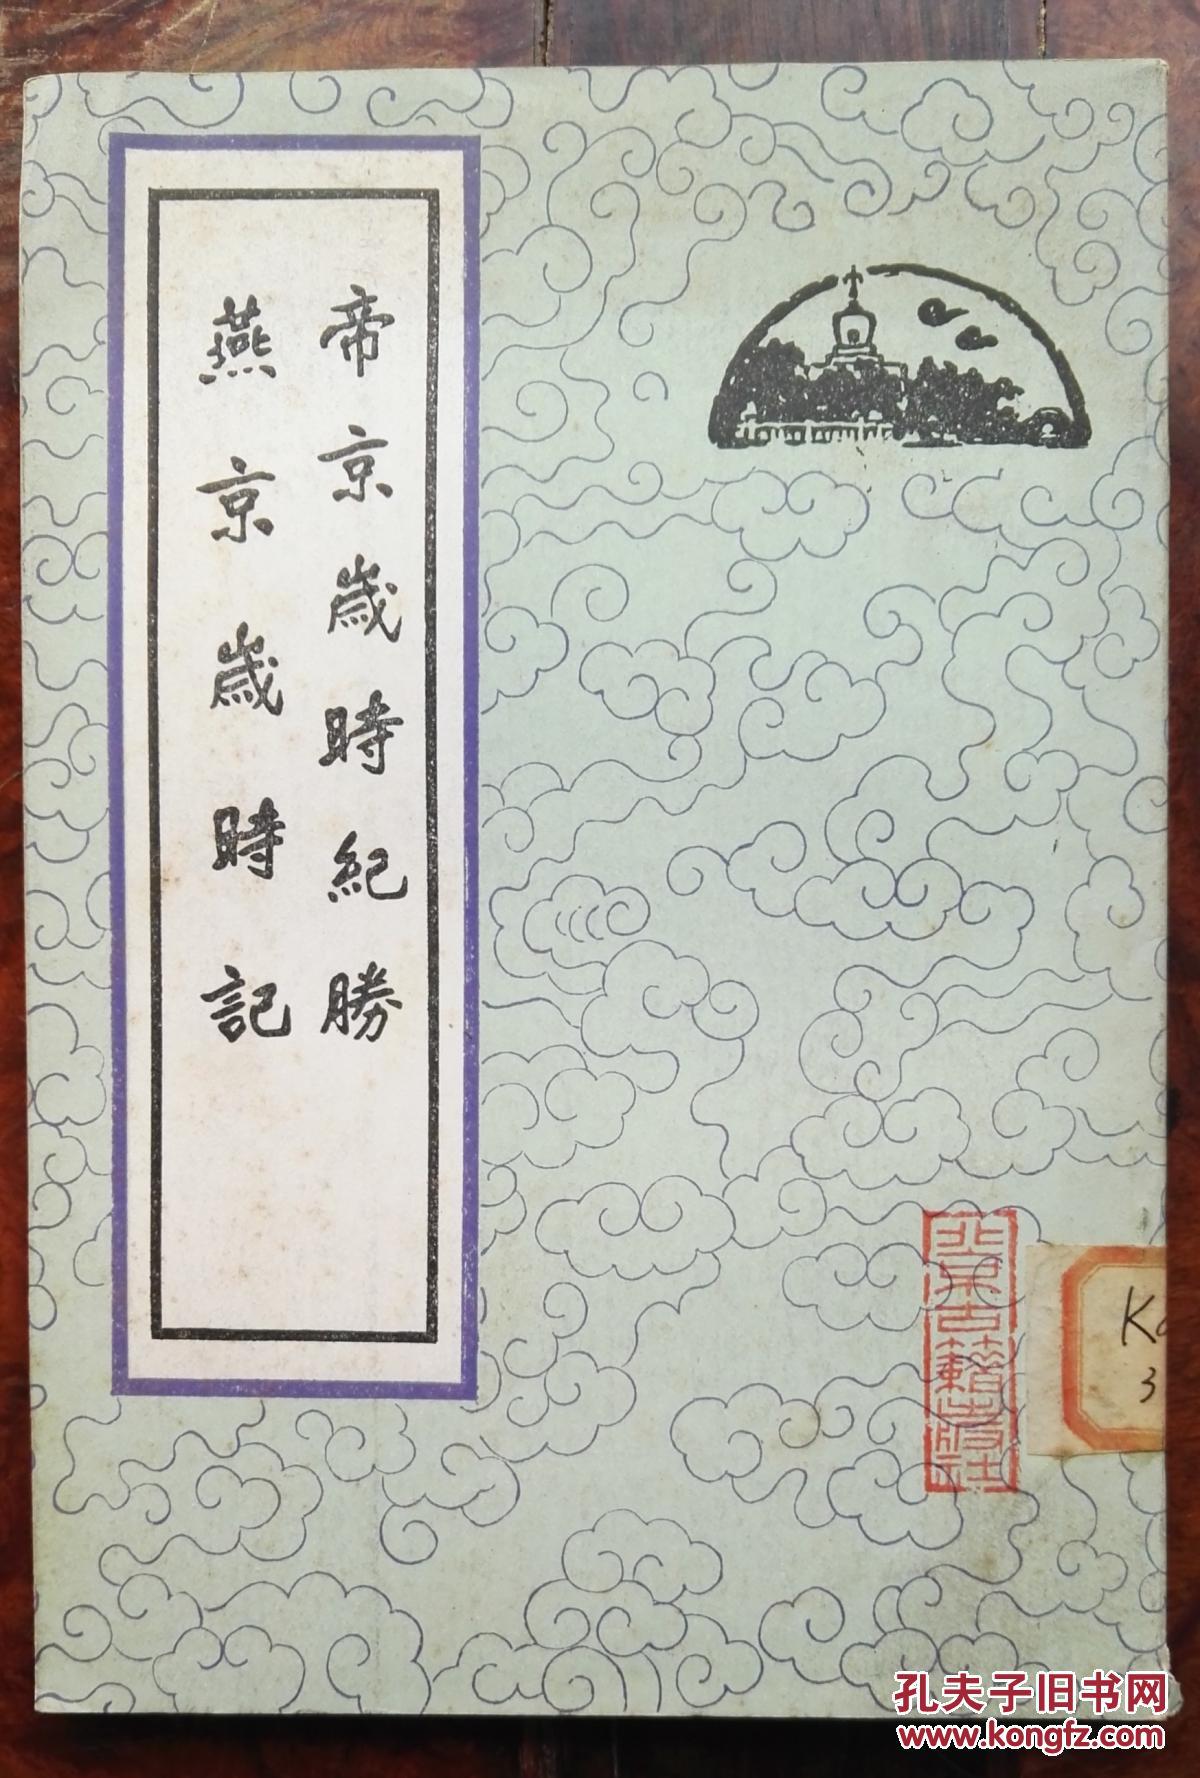 帝京歲時紀勝
燕京歲時記
北京古籍出版社
K
3
孔夫子旧书网
www.kongfz.com